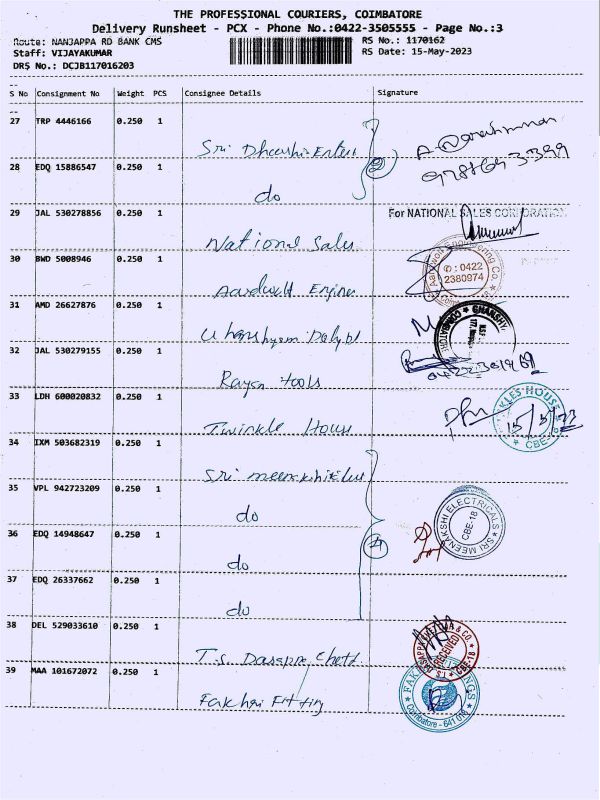 THE PROFESSIONAL COURIERS, COIMBATORE
Delivery Runsheet - PCX - Phone No.:0422-3505555 - Page No.:3
Route: NANJAPPA RD BANK CMS
RS No.: 1170162
Staff: VIJAYAKUMAR
RS Date: 15-May-2023
DRS No.: DCJB117016203
S No Consignment No Weight PCS Consignee Details Signature
27 TRP 4446166 0.250 1
Sri
28 EDQ 15886547 0.250 1
do
29 JAL 530278856 0.250 1 For NATIONAL SALES CORPORATION
National Sales
30 BWD 5008946 0.250 1
✆ : 0422
2380974
31 AMD 26627876 0.250 1
32 JAL 530279155 0.250 1
Tools
33 LDH 600020832 0.250 1
Twinkle House
15/5/23
CBE-18
34 IXM 503682319 0.250 1
Sri
35 VPL 942723209 0.250 1
do
SRI MEENAKSHI ELECTRICALS
CBE-18
36 EDQ 14948647 0.250 1
4
do
37 EDQ 26337662 0.250 1
do
38 DEL 529033610 0.250 1
T.S.
RECEIVED
CBE-18
39 MAA 101672072 0.250 1
Fakhri Fitting
Coimbatore - 641 018